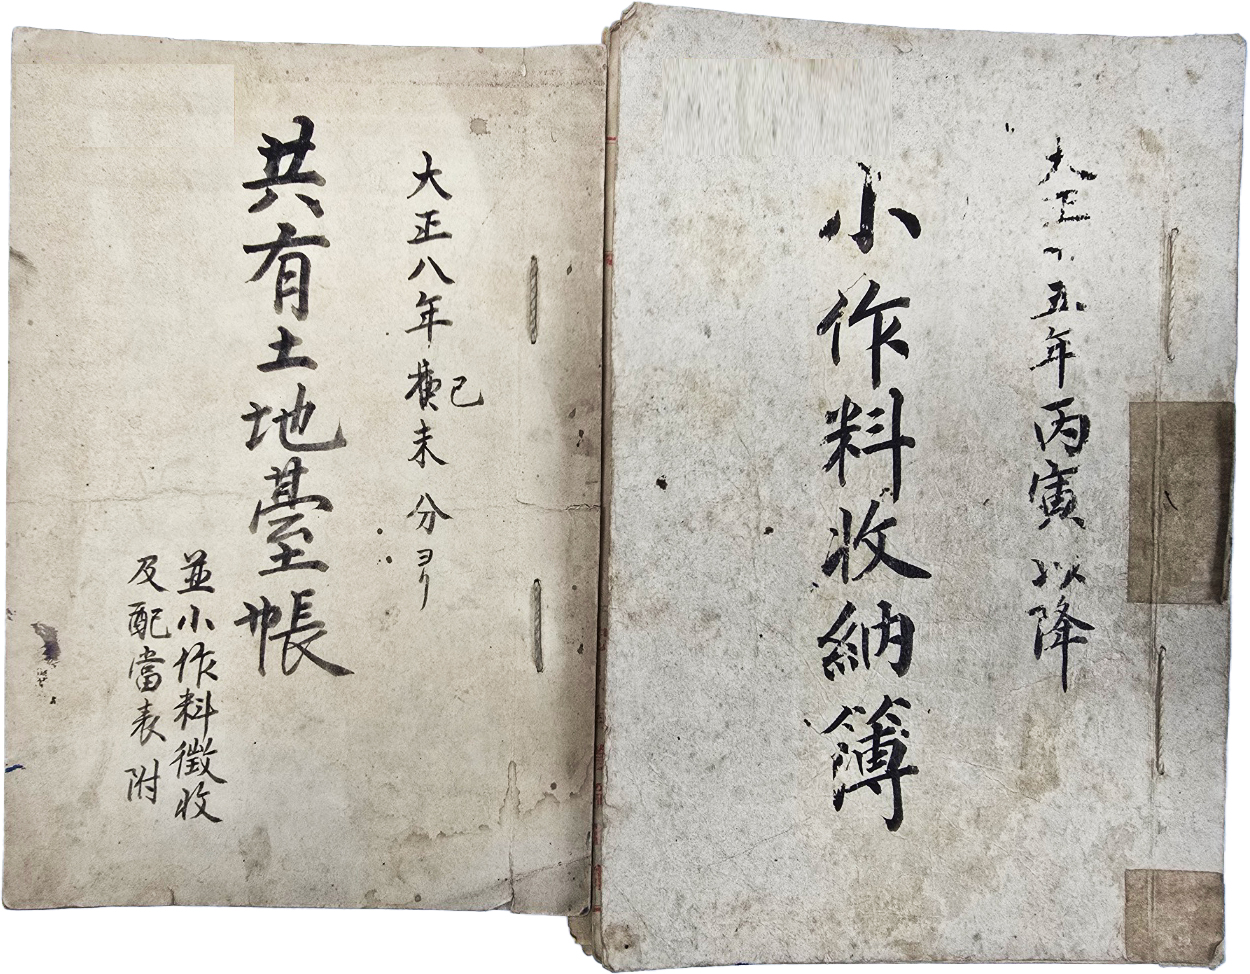 大正十五年丙寅以降
小作料收納簿
大正八年己未分ヨリ
共有土地臺帳
並小作料徴收
及配當表附